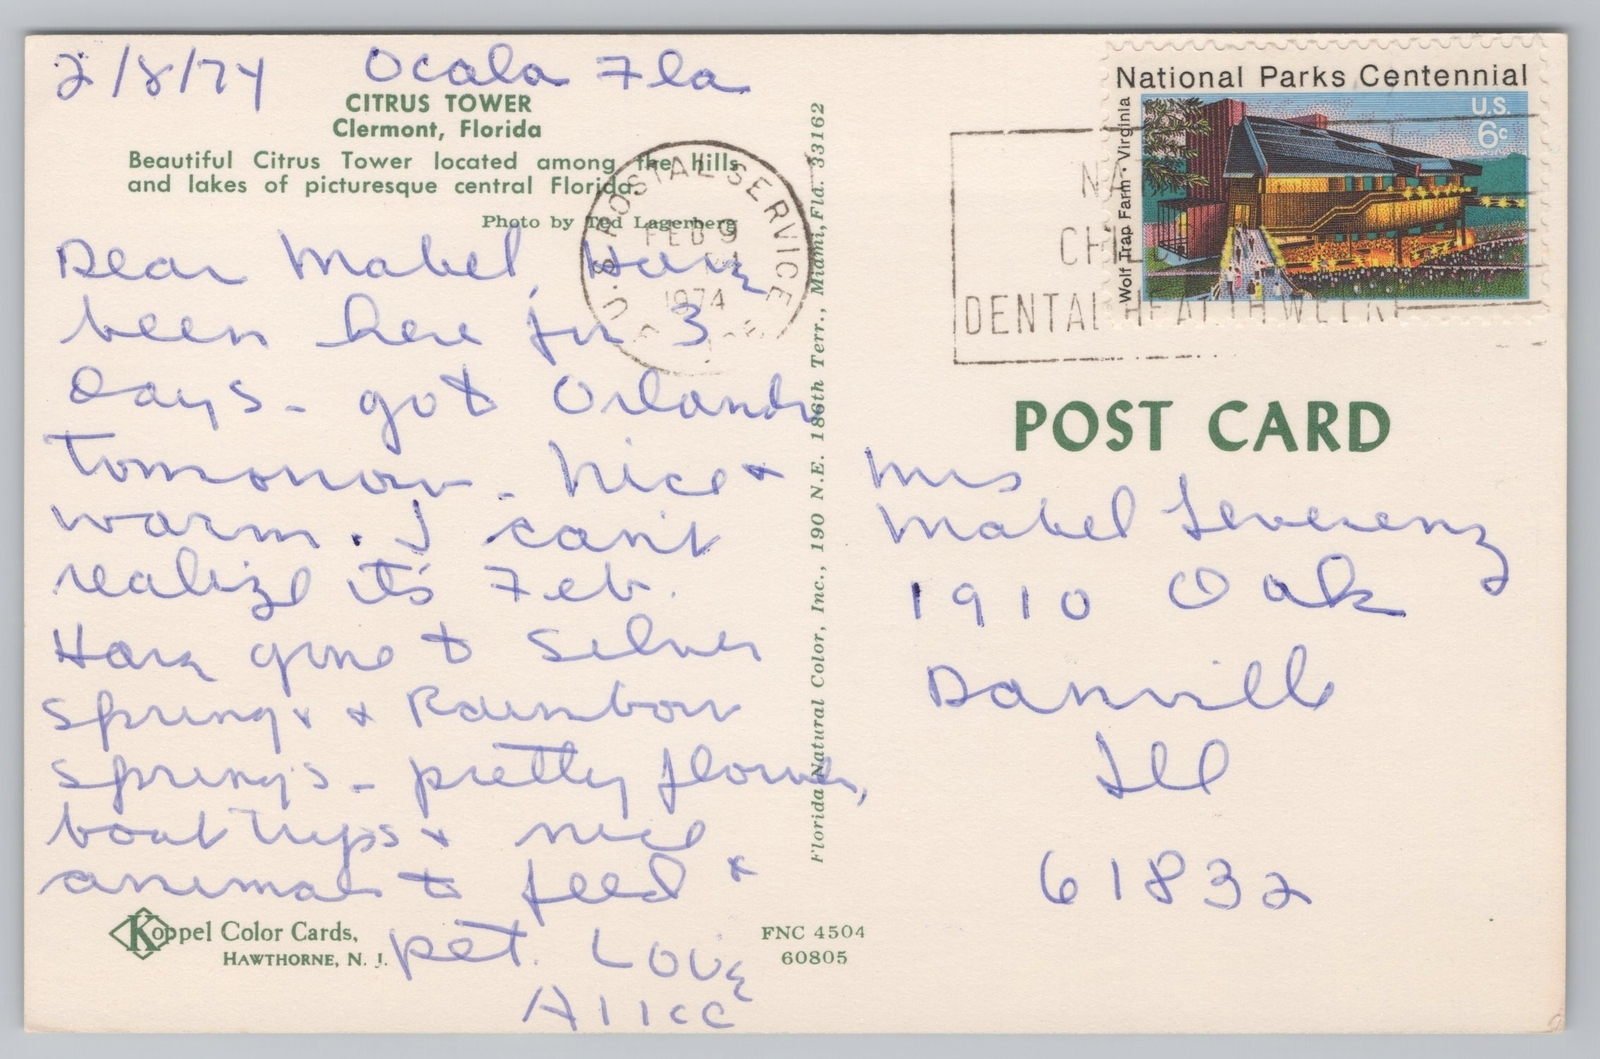 2/8/74 Ocala Fla
CITRUS TOWER
Clermont, Florida
Beautiful Citrus Tower located among the hills
and lakes of picturesque central Florida.
Photo by Ted Lagerberg
Dear Mabel, Have
been here for 3
Days - got Orlando
tomorrow - Nice &
warm. I can't
realize it's Feb.
Have gone to Silver
Springs & Rainbow
Springs - pretty flowers,
boat trips & nice
animals to feed &
pet. Love
Alice
Koppel Color Cards,
HAWTHORNE, N. J.
FNC 4504
60805
Florida Natural Color, Inc., 190 N.E. 186th Terr., Miami, Fla. 33162
U.S. POSTAL SERVICE
FEB 9
1974
DENTAL HEALTH WEEK
National Parks Centennial
U.S.
6c
Wolf Trap Farm · Virginia
POST CARD
Mrs
Mabel Leverenz
1910 Oak
Danville
Ill
61832